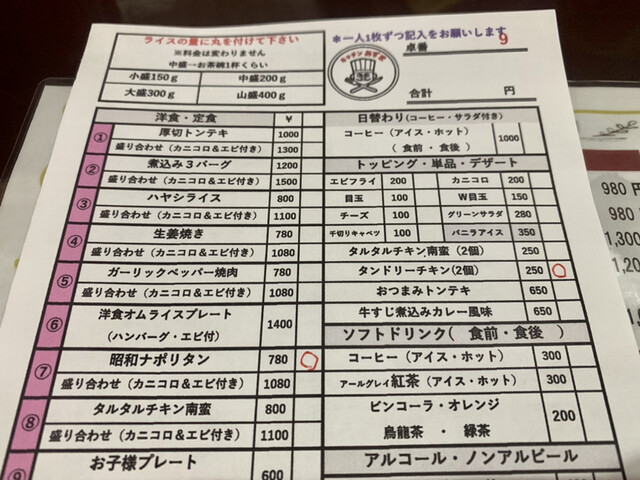 ライスの量に丸を付けて下さい
※料金は変わりません
中盛一お茶碗1杯くらい
小盛150g 中盛200g
大盛300g 山盛400g
＊一人1枚ずつ記入をお願いします
卓番 9
合計 円
洋食・定食 ¥
① 厚切トンテキ 1000
盛り合わせ（カニコロ＆エビ付き） 1300
② 煮込み３バーグ 1200
盛り合わせ（カニコロ＆エビ付き） 1500
③ ハヤシライス 800
盛り合わせ（カニコロ＆エビ付き） 1100
④ 生姜焼き 780
盛り合わせ（カニコロ＆エビ付き） 1080
⑤ ガーリックペッパー焼肉 780
盛り合わせ（カニコロ＆エビ付き） 1080
⑥ 洋食オムライスプレート
（ハンバーグ・エビ付） 1400
⑦ 昭和ナポリタン 780
盛り合わせ（カニコロ＆エビ付き） 1080
⑧ タルタルチキン南蛮 800
盛り合わせ（カニコロ＆エビ付き） 1100
⑨ お子様プレート 600
日替わり（コーヒー・サラダ付き）
コーヒー（アイス・ホット）
（ 食前・食後 ） 1000
トッピング・単品・デザート
エビフライ 200 カニコロ 200
目玉 100 W目玉 150
チーズ 100 グリーンサラダ 280
千切りキャベツ 100 バニラアイス 350
タルタルチキン南蛮（2個） 250
タンドリーチキン(2個) 250
おつまみトンテキ 650
牛すじ煮込みカレー風味 650
ソフトドリンク（ 食前・食後 ）
コーヒー（アイス・ホット） 300
アールグレイ紅茶（アイス・ホット） 300
ビンコーラ・オレンジ
烏龍茶 ・ 緑茶 200
アルコール・ノンアルビール
980円
980
1,300
1,200